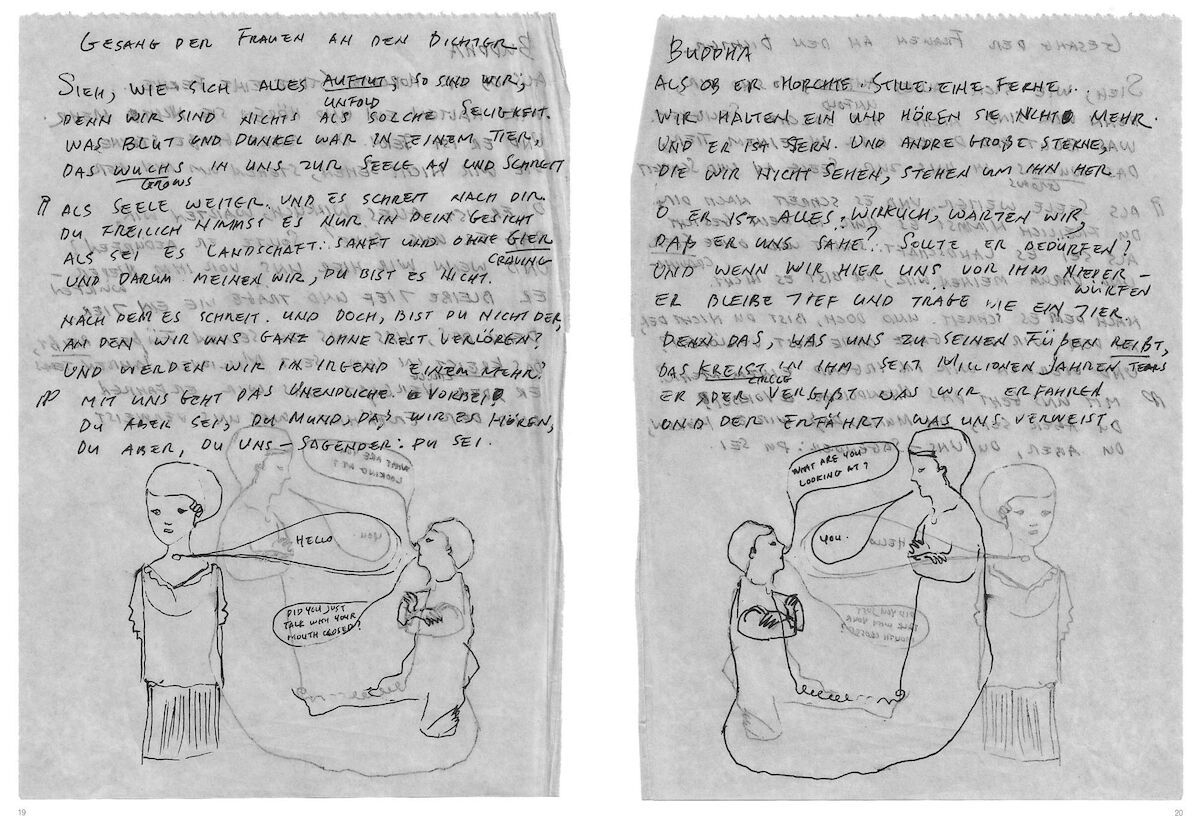 GESANG DER FRAUEN AN DEN DICHTER
SIEH, WIE SICH ALLES AUFTUT, SO SIND WIR;
UNFOLD
DENN WIR SIND NICHTS ALS SOLCHE SELIGKEIT.
WAS BLUT UND DUNKEL WAR IN EINEM TIER,
DAS WUCHS IN UNS ZUR SEELE AN UND SCHREIT
GROWS
ALS SEELE WEITER. UND ES SCHREIT NACH DIR.
DU FREILICH NIMMST ES NUR IN DEIN GESICHT
ALS SEI ES LANDSCHAFT: SANFT UND OHNE GIER
CRAVING
UND DARUM MEINEN WIR, DU BIST ES NICHT.
NACH DEM ES SCHREIT. UND DOCH, BIST DU NICHT DER,
AN DEN WIR UNS GANZ OHNE REST VERLÖREN?
UND WERDEN WIR IN IRGEND EINEM MEHR?
MIT UNS GEHT DAS UNENDLICHE VORBEI
DU ABER SEI, DU MUND, DAS WIR ES HÖREN,
DU ABER, DU UNS-SAGENDER: DU SEI.
HELLO
DID YOU JUST
TALK WITH YOUR
MOUTH CLOSED?
19
BUDDHA
ALS OB ER HORCHTE. STILLE: EINE FERNE..
WIR HALTEN EIN UND HÖREN SIE NICHT MEHR.
UND ER IST STERN. UND ANDRE GROßE STERNE,
DIE WIR NICHT SEHEN, STEHEN UM IHN HER.
O ER IST ALLES. WIRKLICH, WARTEN WIR,
DAß ER UNS SÄHE? SOLLTE ER BEDÜRFEN?
UND WENN WIR HIER UNS VOR IHM NIEDER-
WÜRFEN
ER BLIEBE TIEF UND TRÄGE WIE EIN TIER.
DENN DAS, WAS UNS ZU SEINEN FÜßEN REIßT,
TEARS
DAS KREIST IN IHM SEIT MILLIONEN JAHREN
CIRCLE
ER DER VERGIßT WAS WIR ERFAHREN
UND DER ERFÄHRT WAS UNS VERWEIST.
WHAT ARE YOU
LOOKING AT?
YOU.
20